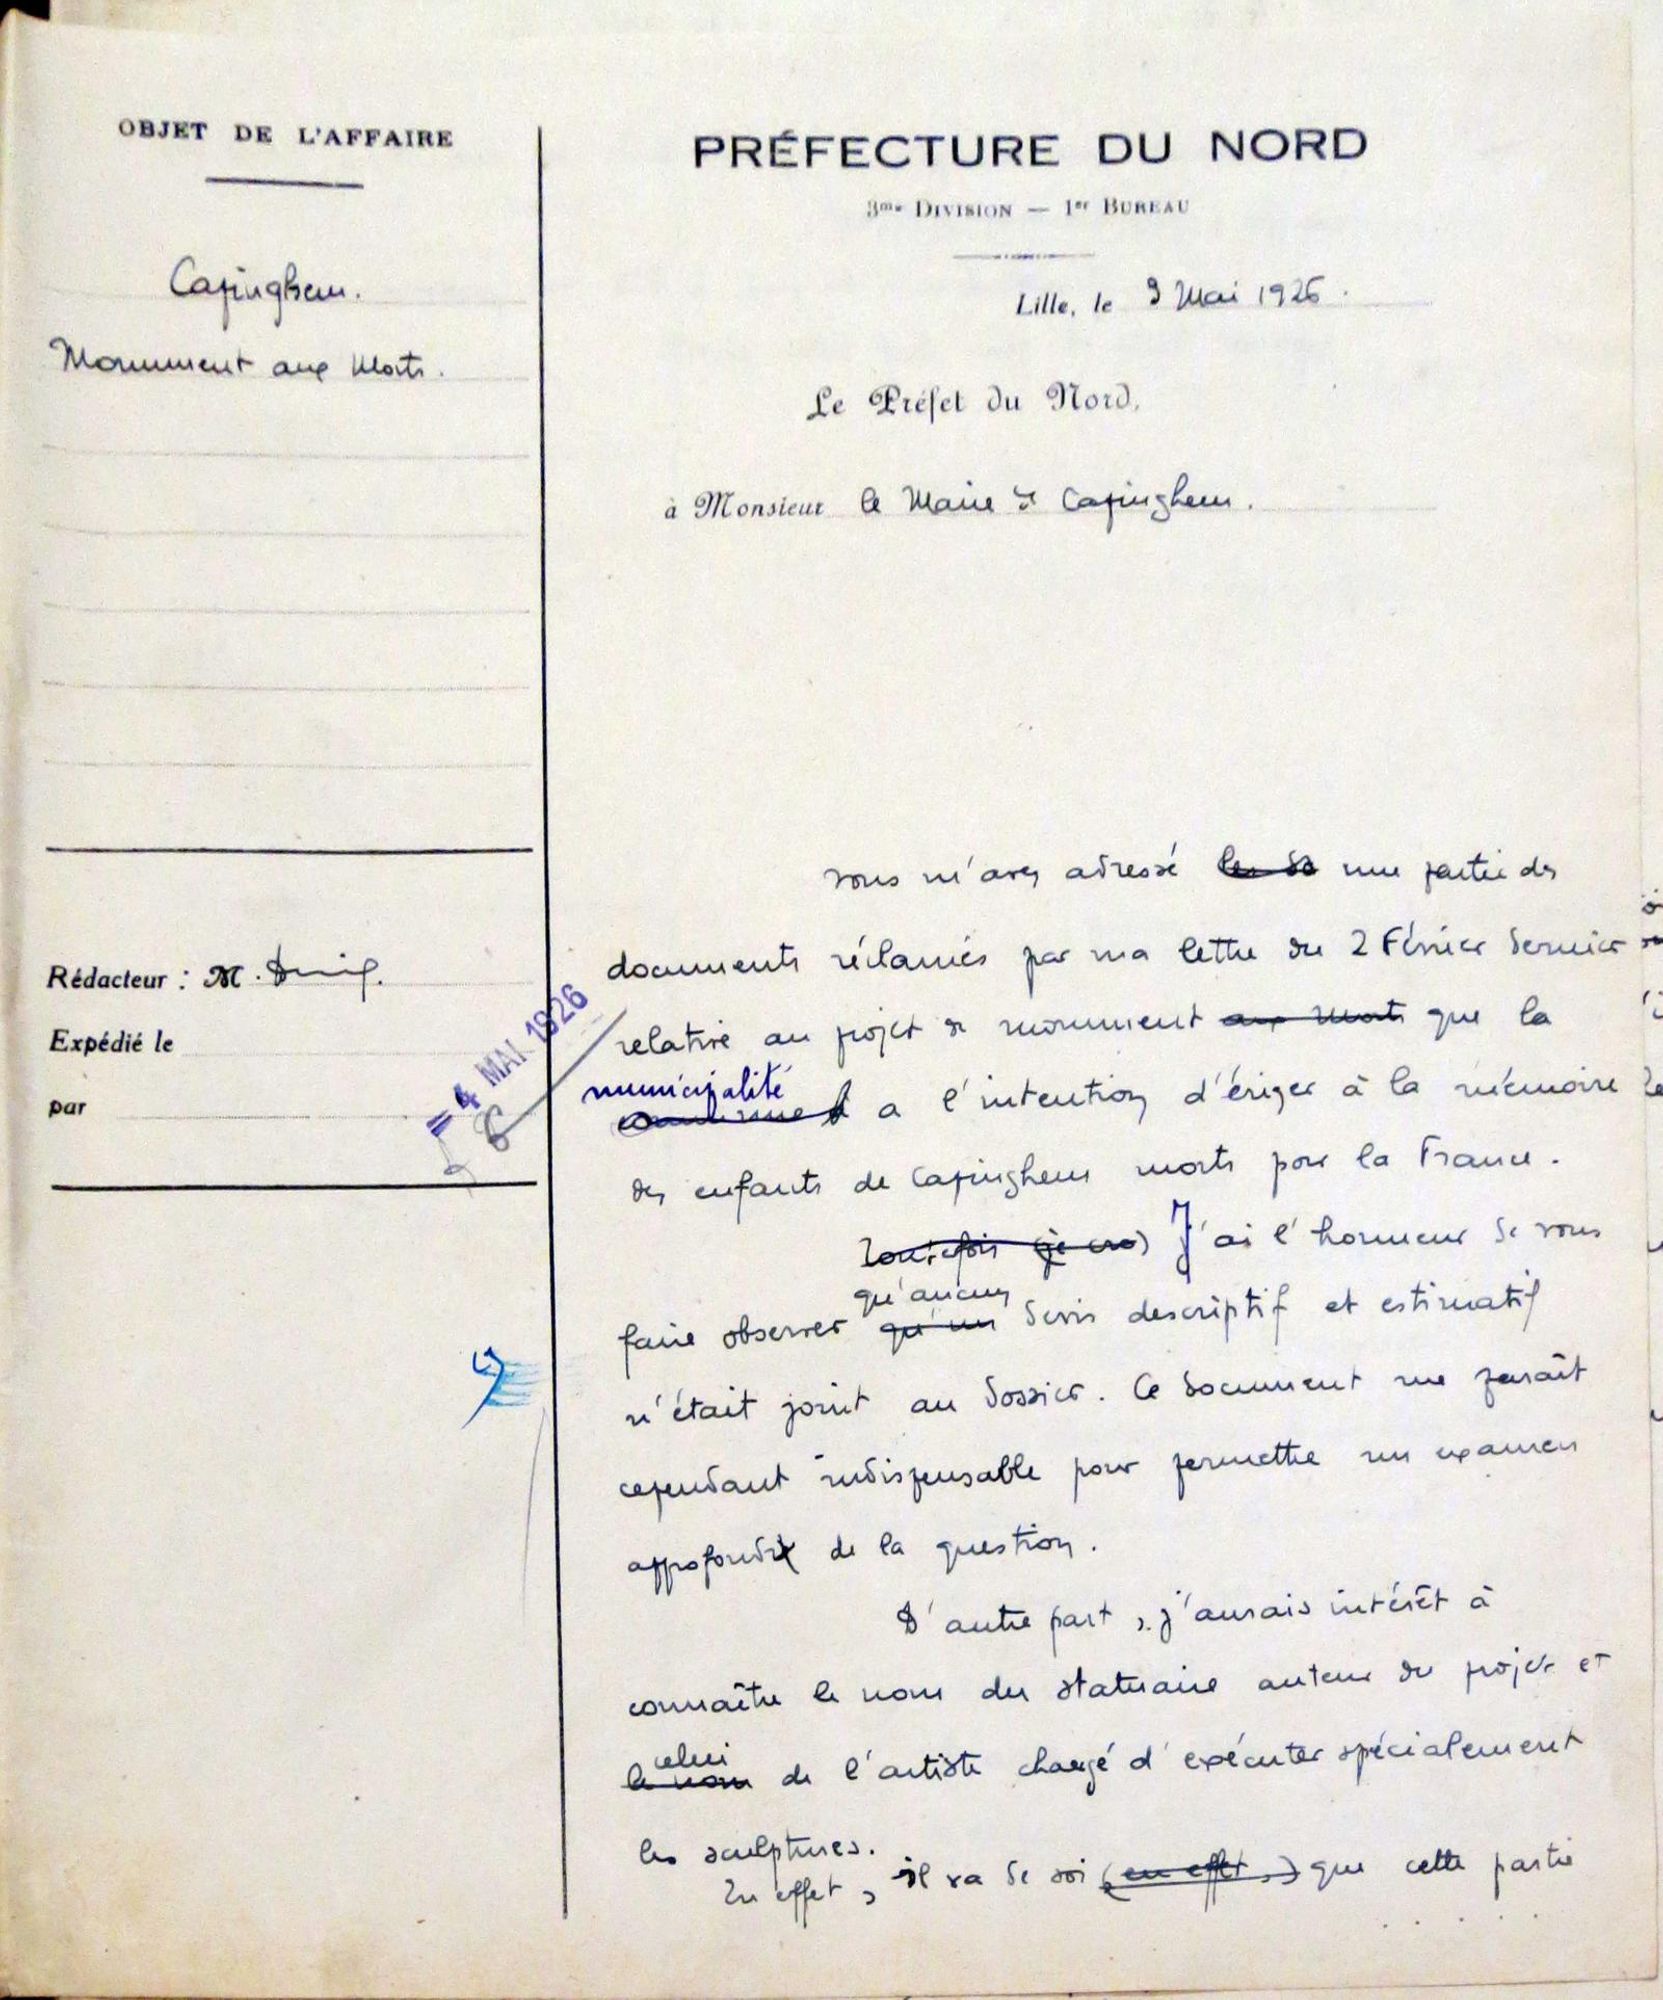 OBJET DE L'AFFAIRE
Capinghem.
Monument aux Morts.
Rédacteur : M.
Expédié le
par
= 4 MAI 1926
PRÉFECTURE DU NORD
3me DIVISION — 1er BUREAU
Lille, le 3 Mai 1926.
Le Préfet du Nord,
à Monsieur le Maire de Capinghem.
vous m'avez adressé les de une partie des
documents réclamés par ma lettre du 2 Février dernier
relative au projet de monument aux morts que la
municipalité
commune a l'intention d'ériger à la mémoire
des enfants de Capinghem morts pour la France.
Toutefois (je cro) J'ai l'honneur de vous
qu'aucun
faire observer qu'un devis descriptif et estimatif
n'était joint au dossier. Ce document me paraît
cependant indispensable pour permettre un examen
approfondi de la question.
D'autre part, j'aurais intérêt à
connaître le nom du statuaire auteur du projet et
celui
le nom de l'artiste chargé d'exécuter spécialement
les sculptures.
En effet, il va de soi (en effet,) que cette partie